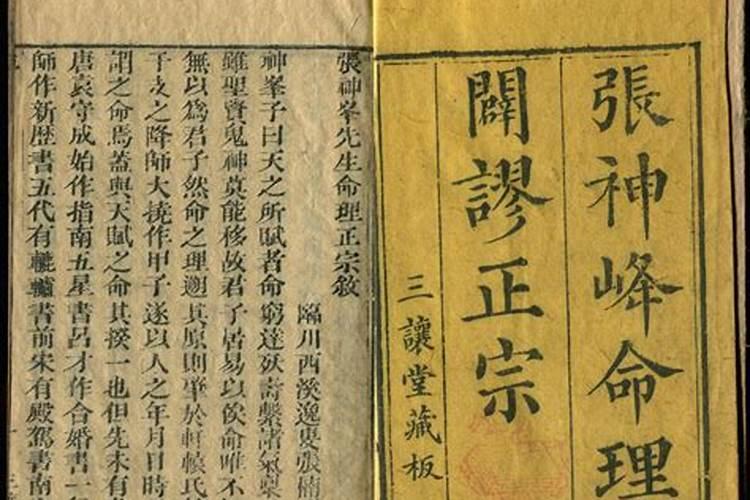 張神峰命理
闢謬正宗
三讓堂藏板
張神峯先生命理正宗敘
臨川西溪逸叟張楠
神峯子曰天之所賦者命窮達殀壽繫諸氣稟
雖聖賢鬼神莫能移故君子居易以俟命唯不
無以爲君子然命之理邇其原則肇於軒轅氏
干支之降師大撓作甲子遂以人之年月日時
謂之命焉蓋與天賦之命其揆一也但先未有
唐袁守成始作指南五星書呂才作合婚書一
師作新歴書五代有轆轤書前宋有殿駕書南